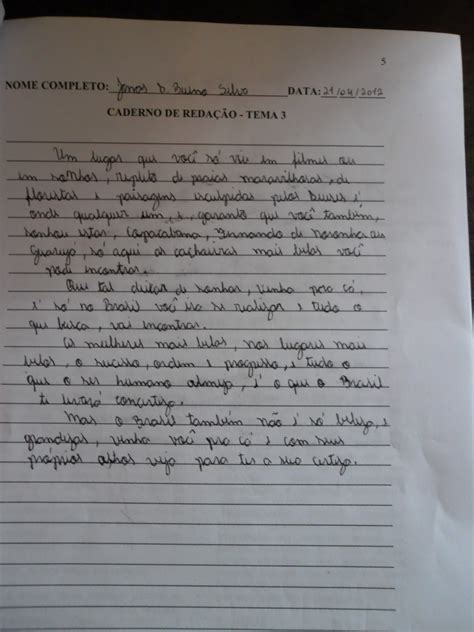 5
NOME COMPLETO: Jonas D. Bueno Silva DATA: 21/04/2012
CADERNO DE REDAÇÃO - TEMA 3
Um lugar que você só viu em filmes ou
em sonhos, repleto de praias maravilhosas, de
florestas e paisagens esculpidas pelos Deuses é
onde qualquer um, e, garanto que você também,
sonhou estar, Copacabana, Fernando de noronha ou
Guarujá, só aqui as cachoeiras mais belas você
pode encontrar.
Que tal deixar de sonhar, venha pra cá,
é só no Brasil você irá se realizar e tudo o
que busca, vai encontrar.
As mulheres mais belas, nos lugares mais
belos, o sucesso, ordem e progresso, e tudo o
que o ser humano almeja, é o que o Brasil
te levará concerteza.
Mas o Brasil também não é só beleza, e
grandezas, venha você pra cá e com seus
próprios olhos veja para ter a sua certeza.